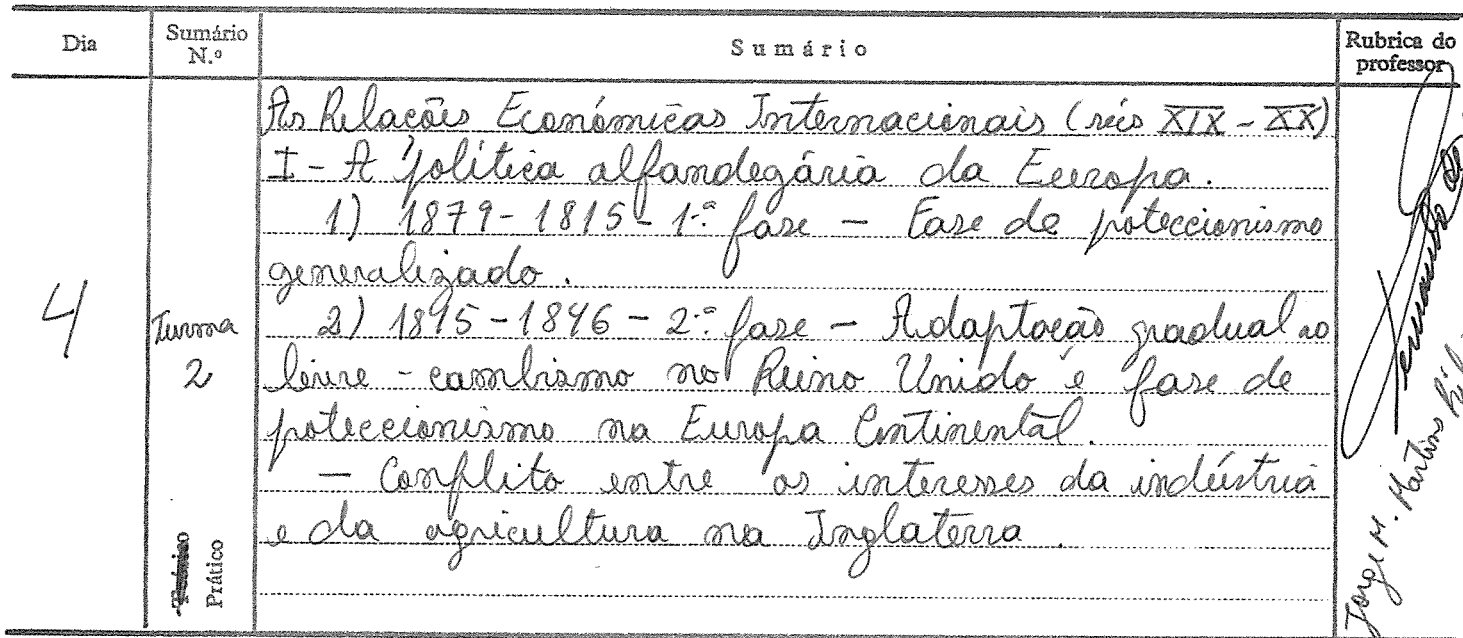 Dia
Sumário N.º
Sumário
Rubrica do professor
As Relações Económicas Internacionais (sécs XIX - XX)
I - A política alfandegária da Europa.
1) 1879 - 1815 - 1.ª fase - Fase de poteccionismo
generalizado.
4
Turma
2
2) 1815 - 1846 - 2.ª fase - Adaptação gradual ao
livre - cambismo no Reino Unido e fase de
poteccionismo na Europa Continental.
- Conflito entre os interesses da indústria
e da agricultura na Inglaterra.
Teórico
Prático
Fernando
Jorge M. Martins